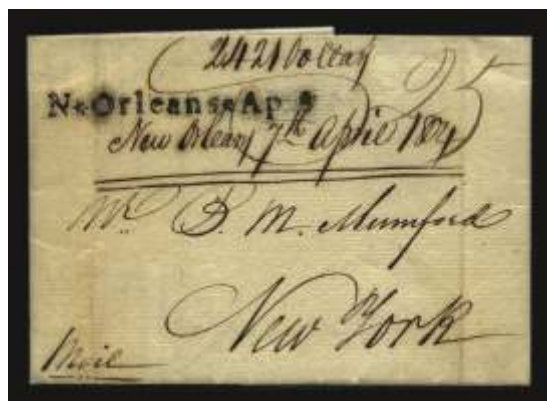 2421 Dollars
25
N*Orleans*Ap
New Orleans 7th April 1804
Mr. B. M. Mumford
New York
Mail